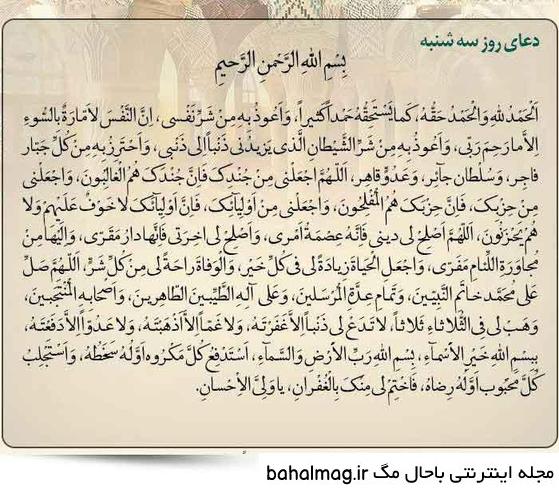 دعای روز سه شنبه
بِسْمِ اللهِ الرَّحْمنِ الرَّحيمِ
اَلْحَمْدُ لِلّهِ وَالْحَمْدُ حَقُّهُ، كَما يَسْتَحِقُّهُ حَمْداً كَثيراً، وَاَعُوذُ بِهِ مِنْ شَرِّ نَفْسى، اِنَّ النَّفْسَ لاَمّارَةٌ بِالسُّوءِ
اِلاّ ما رَحِمَ رَبّى، وَاَعُوذُ بِهِ مِنْ شَرِّ الشَّيْطانِ الَّذى يَزيدُنى ذَنْباً اِلى ذَنْبى، وَاَحْتَرِزُ بِهِ مِنْ كُلِّ جَبّار
فاجِر، وَسُلْطان جائِر، وَعَدُوٍّ قاهِر، اَللّهُمَّ اجْعَلْنى مِنْ جُنْدِكَ فَاِنَّ جُنْدَكَ هُمُ الْغالِبُونَ، وَاجْعَلْنى
مِنْ حِزْبِكَ، فَاِنَّ حِزْبَكَ هُمُ الْمُفْلِحُونَ، وَاجْعَلْنى مِنْ اَوْلِيآئِكَ، فَاِنَّ اَوْلِيآئَكَ لا خَوْفٌ عَلَيْهِمْ وَلا
هُمْ يَحْزَنُونَ، اَللّهُمَّ اَصْلِحْ لى دينى فَاِنَّهُ عِصْمَةُ اَمْرى، وَاَصْلِحْ لى اخِرَتى فَاِنَّها دارُ مَقَرّى، وَاِلَيْها مِنْ
مُجاوَرَةِ اللِّئامِ مَفَرّى، وَاجْعَلِ الْحَياةَ زِيادَةً لى فى كُلِّ خَيْر، وَالْوَفاةَ راحَةً لى مِنْ كُلِّ شَرٍّ، اَللّهُمَّ صَلِّ
عَلى مُحَمَّد خاتَمِ النَّبِيّينَ، وَتَمامِ عِدَّةِ الْمُرْسَلينَ، وَعَلى آلِهِ الطَّيِّبينَ الطّاهِرينَ، وَاَصْحابِهِ الْمُنْتَجَبينَ،
وَهَبْ لى فِى الثُّلاثاءِ ثَلاثاً، لا تَدَعْ لى ذَنْباً اِلاّ غَفَرْتَهُ، وَلا غَمّاً اِلاّ اَذْهَبْتَهُ، وَلا عَدُوّاً اِلاّ دَفَعْتَهُ،
بِبِسْمِ اللهِ خَيْرِ الاَْسْماءِ، بِسْمِ اللهِ رَبِّ الاَْرْضِ وَالسَّماءِ، اَسْتَدْفِعُ كُلَّ مَكْرُوه اَوَّلُهُ سَخَطُهُ، وَاَسْتَجْلِبُ
كُلَّ مَحْبُوب اَوَّلُهُ رِضاهُ، فَاخْتِمْ لى مِنْكَ بِالْغُفْرانِ، يا وَلِىَّ الاِْحْسانِ.
مجله اینترنتی باحال مگ bahalmag.ir